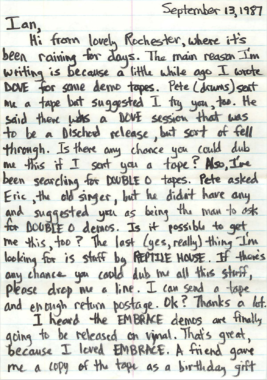 September 13, 1987
Ian,
Hi from lovely Rochester, where it's
been raining for days. The main reason I'm
writing is because a little while ago I wrote
DOVE for some demo tapes. Pete (drums) sent
me a tape but suggested I try you, too. He
said there was a DOVE session that was
to be a Dischord release, but sort of fell
through. Is there any chance you could dub
me this if I sent you a tape? Also, I've
been searching for DOUBLE O tapes. Pete asked
Eric, the old singer, but he didn't have any
and suggested you as being the man to ask
for DOUBLE O demos. Is it possible to get
me this, too? The last (yes, really) thing I'm
looking for is stuff by REPTILE HOUSE. If there's
any chance you could dub me all this stuff,
please drop me a line. I can send a tape
and enough return postage. Ok? Thanks a lot.
I heard the EMBRACE demos are finally
going to be released on vinyl. That's great,
because I loved EMBRACE. A friend gave
me a copy of the tape as a birthday gift